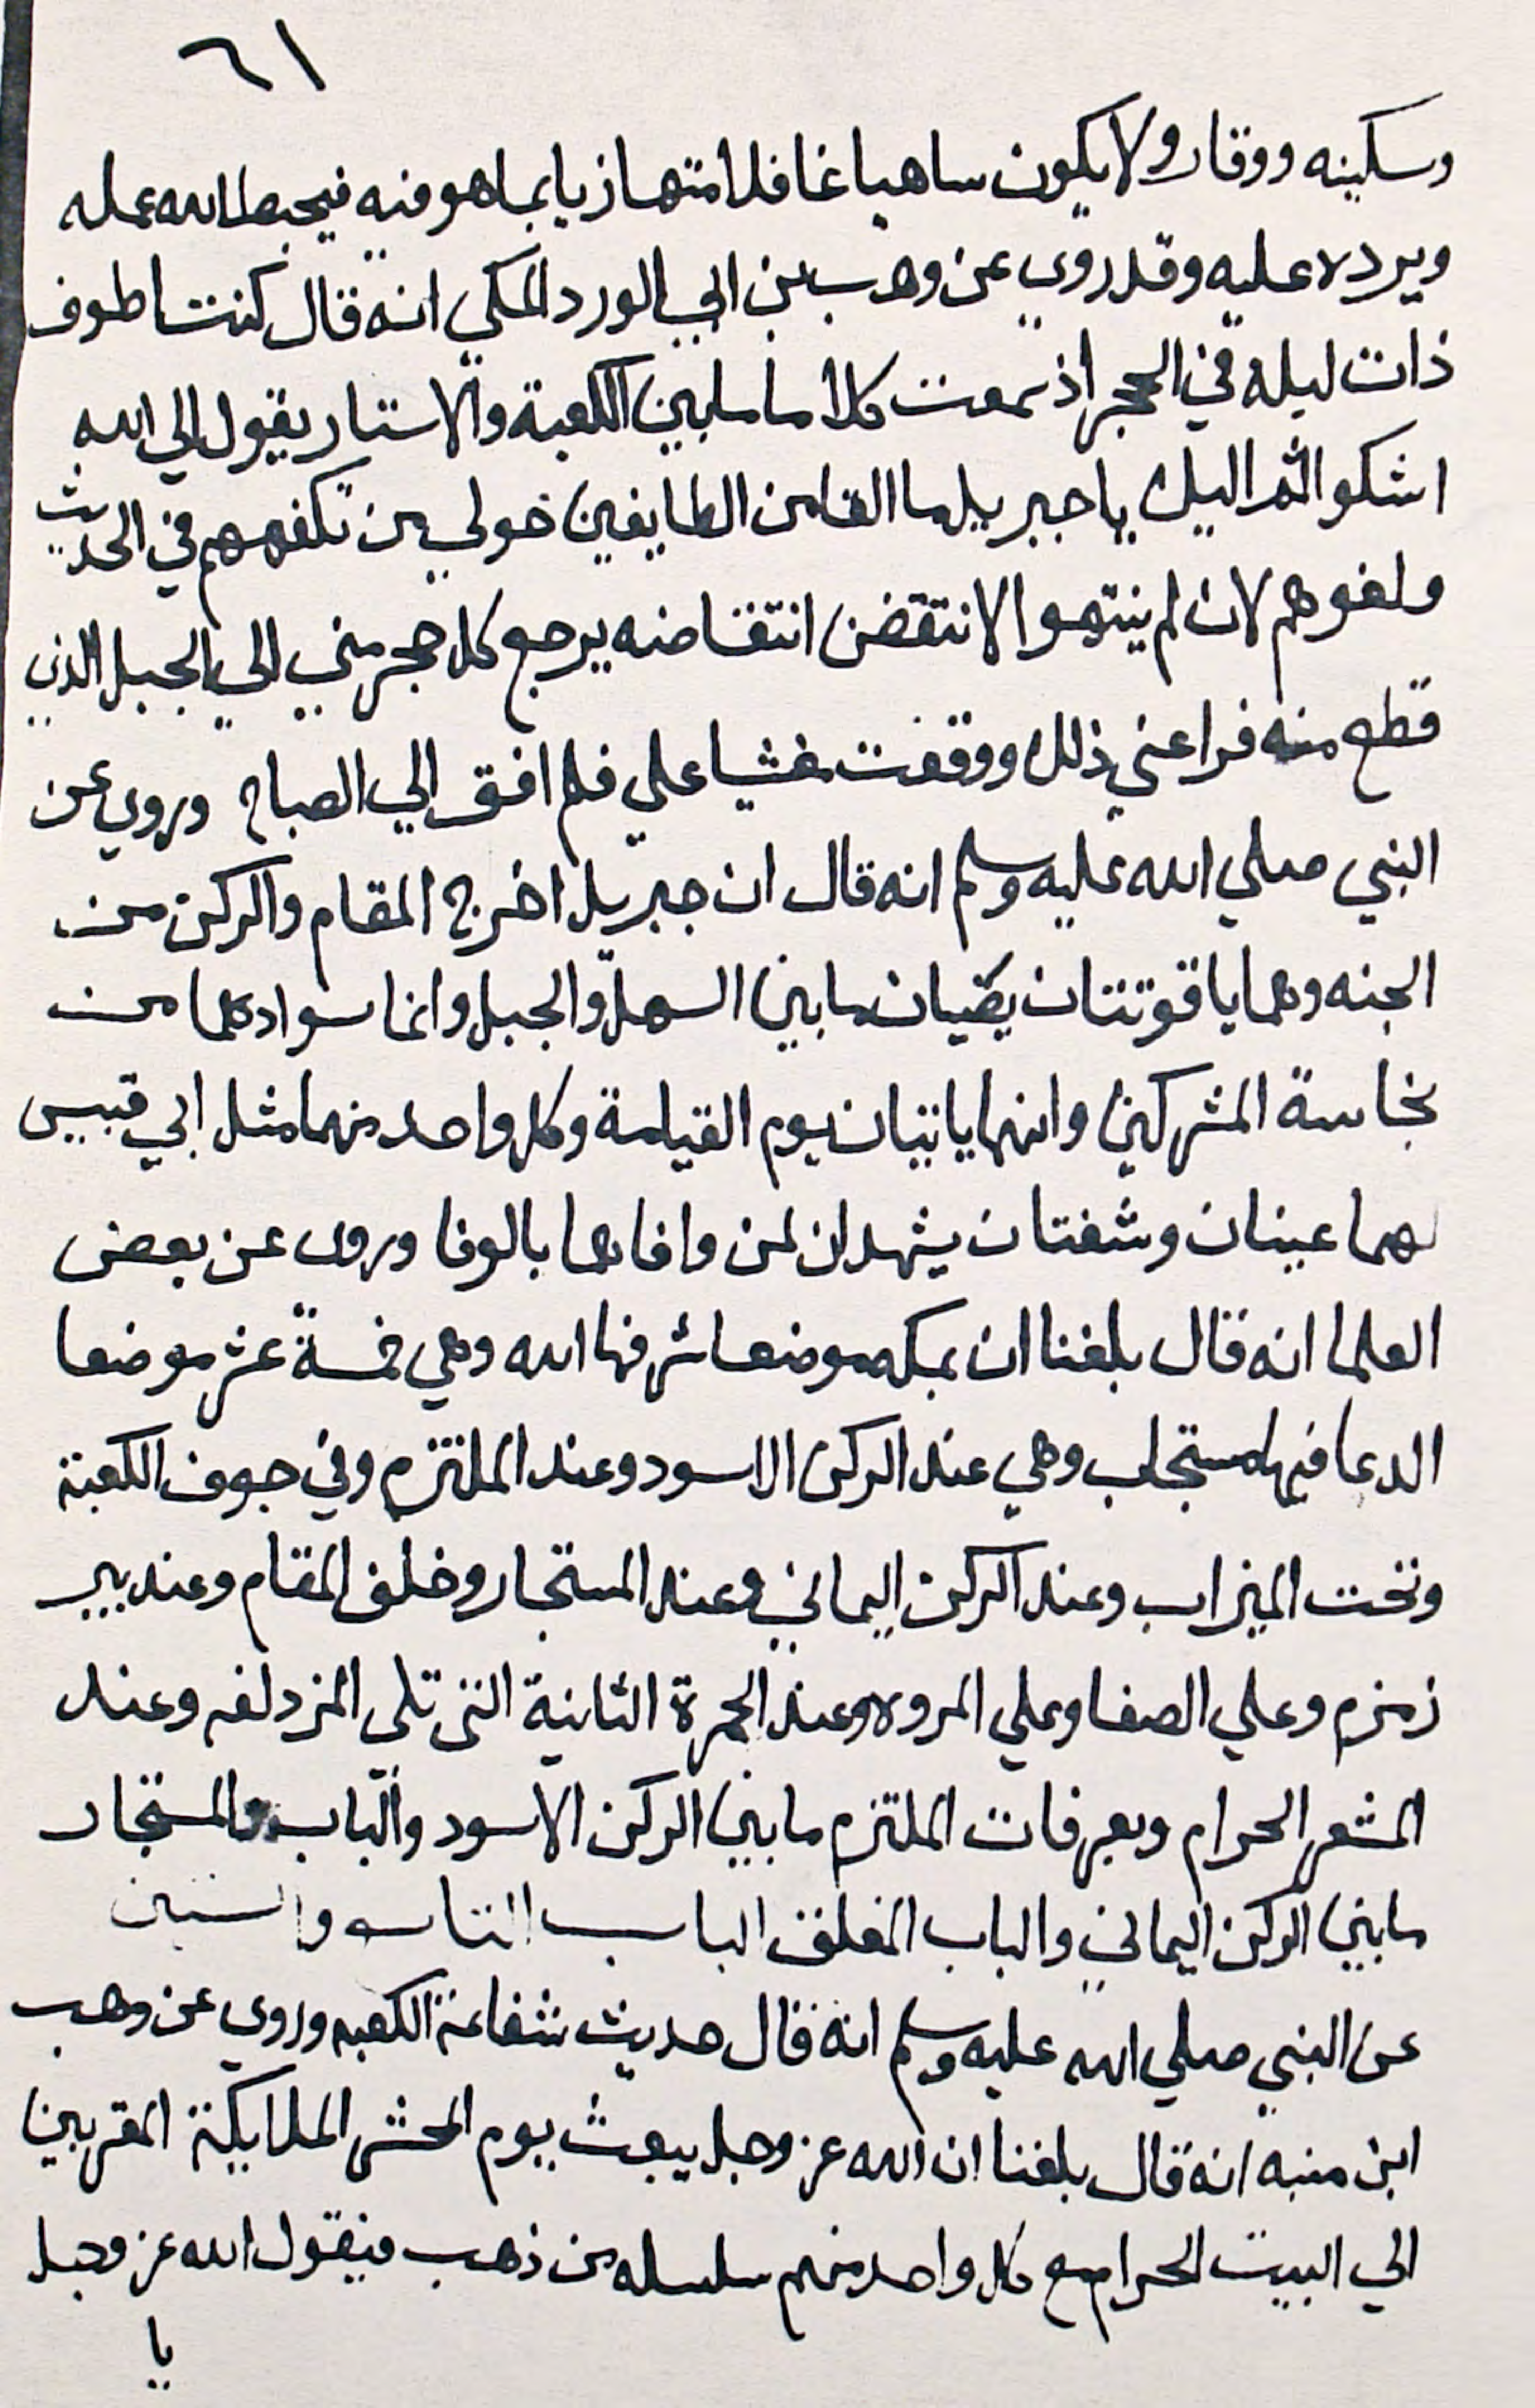 ٦١
وسكينه ووقار ولا يكون ساهيا غافلا متهازيا بما هو فيه فيحبط الله عمله
ويرده عليه وقد روي عن وهب بن ابي الورد المكي انه قال كنت اطوف
ذات ليلة في الحجر اذ سمعت كلاما ما بين الكعبة والاستار يقول الي الله
اشكوا ثم اليك يا جبريل ما القا من الطايفين حولي من تكفههم في الحديث
ولغوهم لان لم ينتهوا لانتقضن انتقاضه يرجع كل حجر مني الي الجبل الذي
قطع منه فراعني ذلك ووقفت مغشيا علي فلم افق الي الصباح وروي عن
النبي صلي الله عليه وسلم انه قال ان جبريل اخرج المقام والركن من
الجنه وهما ياقوتتان يضيان ما بين السهل والجبل وانما سوادهما من
نجاسة المشركين وانهما ياتيان يوم القيامة وكل واحد منهما مثل ابي قبيس
لهما عينان وشفتان يشهدان لمن وافاهما بالوفا وروى عن بعض
العلما انه قال بلغنا ان بمكه موضعا شرفها الله وهي خمسة عشر موضعا
الدعا فيها مستجاب وهي عند الركن الاسود وعند الملتزم وفي جوف الكعبة
وتحت الميزاب وعند الركن اليماني وعند المستجار وخلف المقام وعند بير
زمزم وعلي الصفا وعلي المروه وعند الجمرة الثانية التى تلى المزدلفه وعند
المشعر الحرام وبعرفات الملتزم ما بين الركن الاسود والباب والمستجار
ما بين الركن اليماني والباب المغلق الباب الثاسه والستين
عن النبي صلي الله عليه وسلم انه قال حديث شفاعة الكعبه وروي عن وهب
ابن منبه انه قال بلغنا ان الله عز وجل يبعث يوم الحشر الملايكة المقربين
الي البيت الحرام مع كل واحد منهم سلسله من ذهب فيقول الله عز وجل
يا